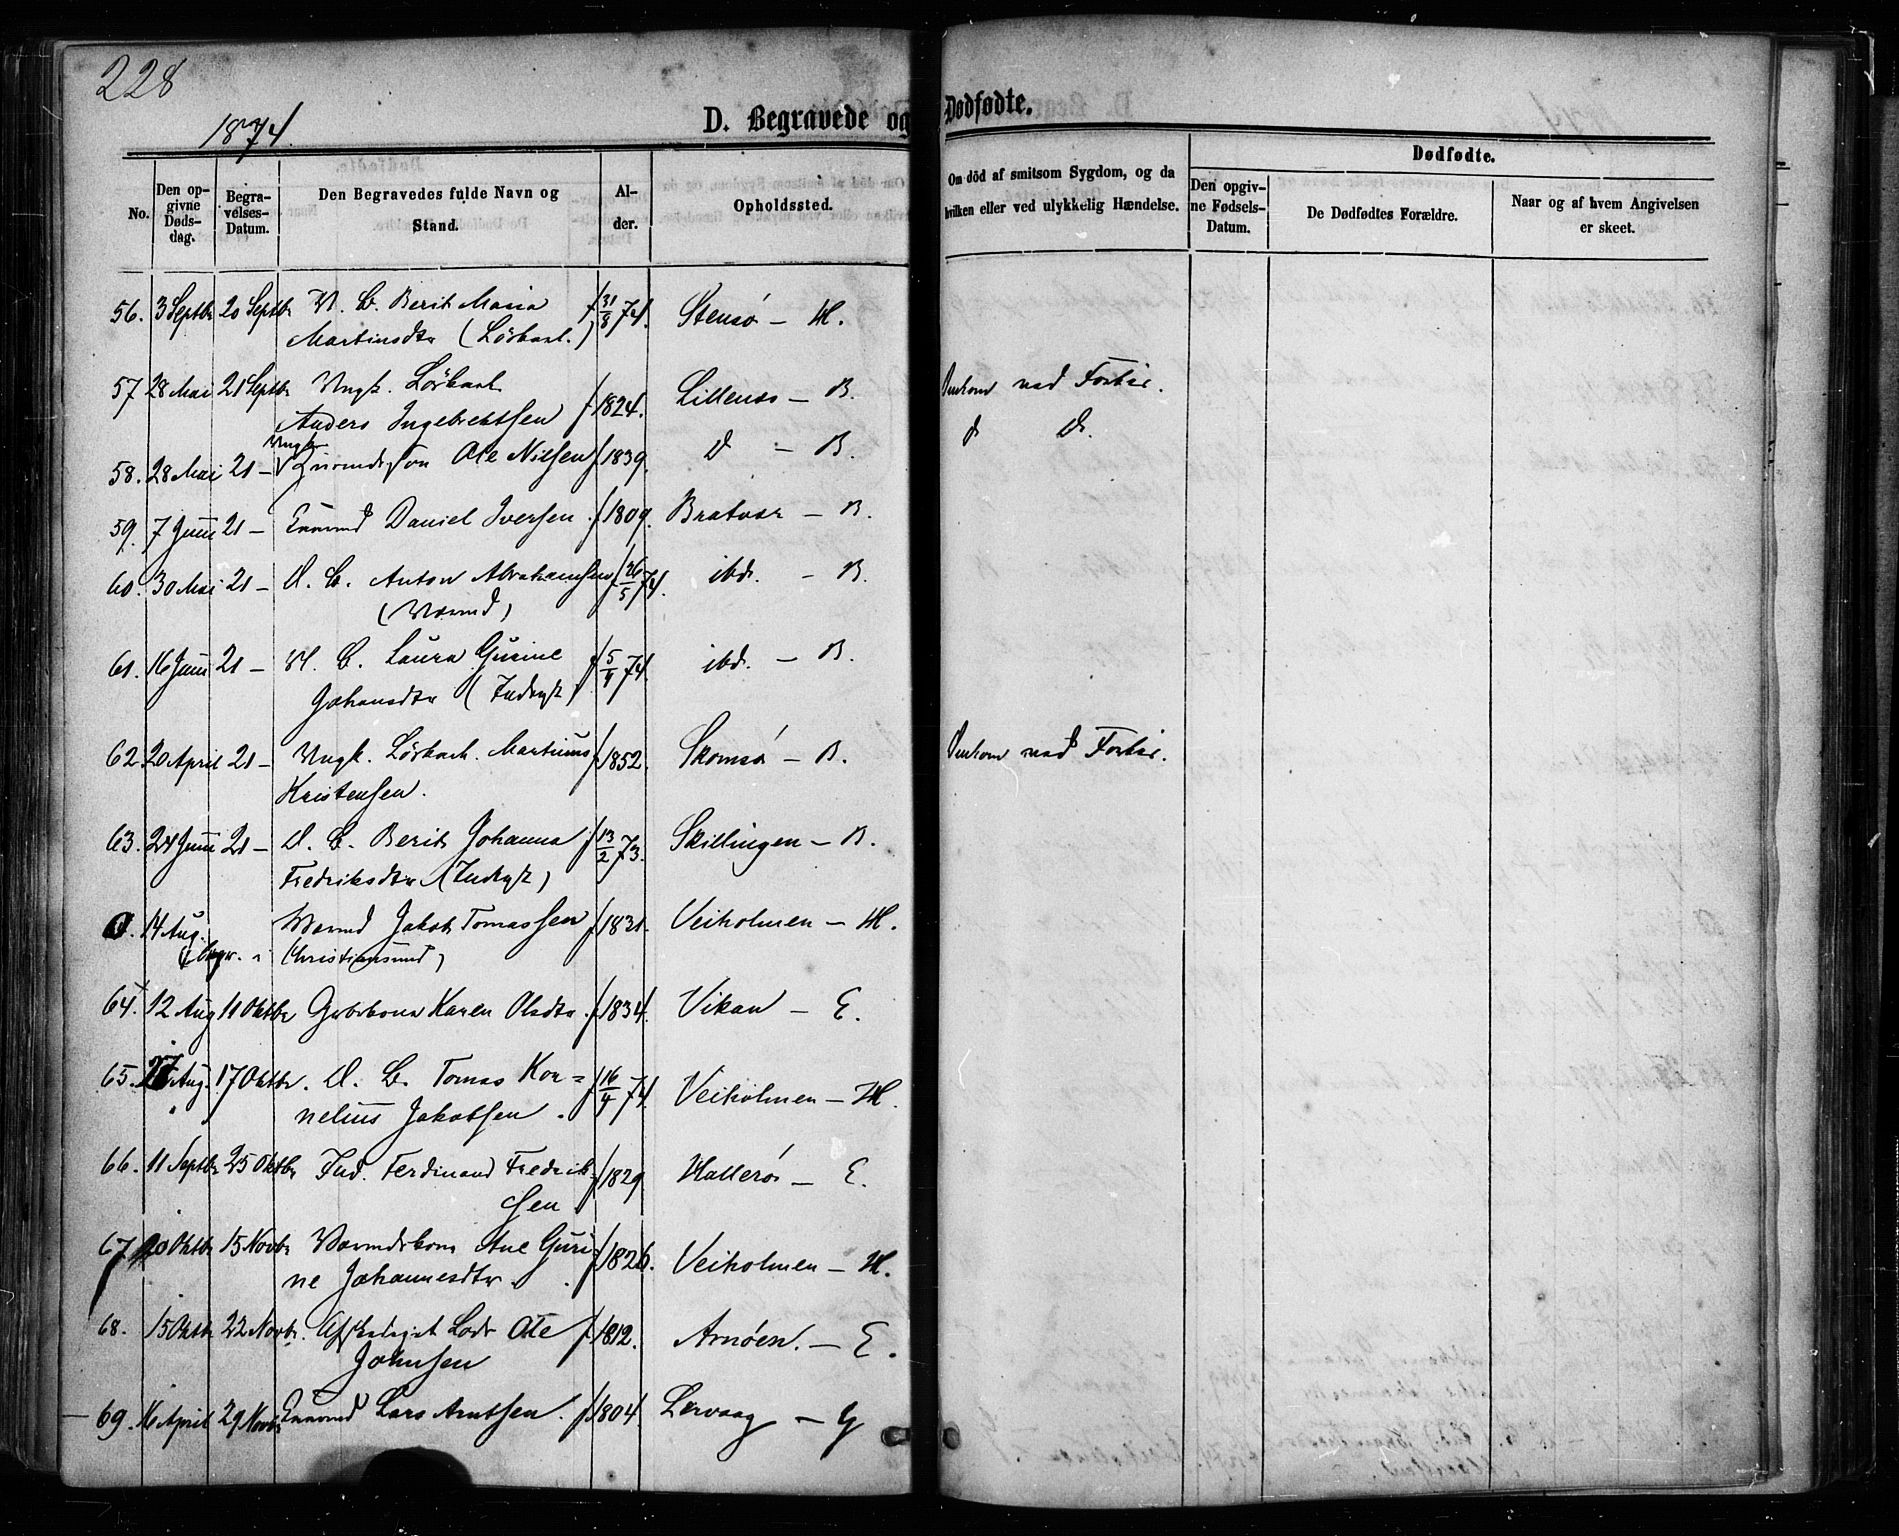 228
1874.
D. Begravede og Dødfødte.
No.
Den opgivne Dødsdag.
Begravelses-Datum.
Den Begravedes fulde Navn og Stand.
Alder.
Opholdssted.
Om död af smitsom Sygdom, og da hvilken eller ved ulykkelig Hændelse.
Dødfødte.
Den opgivne Fødsels-Datum.
De Dødfødtes Forældre.
Naar og af hvem Angivelsen er skeet.
56. 3 Septbr 20 Septbr Berit Maria f 31/8 74. Stensø – H.
Martinsdtr (Løskarl.)
57 28 Mai 21 Septbr Ungk. Løskarl f 1824. – B. Omkom ved Forlis.
Anders Ingebrektsen
58. 28 Mai 21 – Ungk. Ole Nilsen f 1839. d – B. d d.
59. 7 Juni 21 – Daniel Iversen f 1809. Bratvær – B.
60. 30 Mai 21 – U. B. Anton Abrahamsen f 26/5 74. ibd. – B.
61. 16 Juni 21 – B. Laura Gurine f 5/4 74. ibd. – B.
Johansdtr (Inderst)
62. 20 April 21 – Ungk. Løskarl. Martinus f 1852. Skomsø – B. Omkom ved Forlis.
Kristensen.
63. 24 Juni 21 – U. B. Berit Johanna f 13/2 73. Skillingen – B.
Fredriksdtr (Inderst)
d. 14 Aug. Jakob Tomassen f 1831. Veiholmen – H.
(begr. i Christiansund)
64. 12 Aug 11 Oktbr Karen Olsdtr f 1834. Vikan – E.
65. 27 Aug. 17 Oktbr. U. B. Tomas Kor= f 16/4 74. Veiholmen – H.
nelius Jakobsen.
66. 11 Septbr 25 Oktbr Ind. Ferdinand Fredrik- f 1829 Hallerø – E.
sen
67 20 Oktbr 15 Novbr Ane Guri- f 1826. Veiholmen – H.
ne Johannesdtr.
68. 15 Oktbr 22 Novbr. Afskediget Lods Ole f 1812. Arnøen. – E.
Johnsen
69. 16 April 29 Novbr Lars Arntsen. f 1804. Lervaag – G